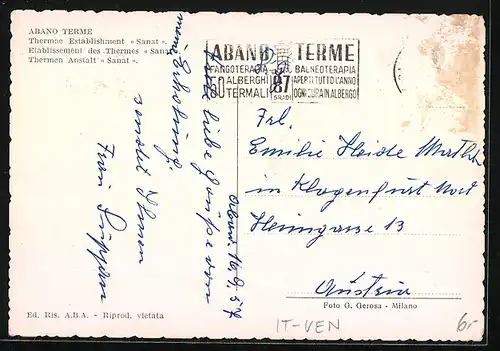 ABANO TERME
Thermae Establishment « Sanat ».
Etablissement des Thermes « Sanat
Thermen Anstalt « Sanat ».
ABANO TERME
FANGOTERAPIA BALNEOTERAPIA
ALBERGHI APERTI TUTTO L'ANNO
TERMALI 87 GRADI OGNI CURA IN ALBERGO
Abano 16.9.57
Viele liebe Grüße von
meiner Erholung,
sendet Ihnen
Frau
Frl.
Emilie Heide
in Klagenfurt Nord
Heimgasse 13
Austria
Foto G. Gerosa - Milano
Ed. Ris. A.B.A. - Riprod. vietata
IT-VEN
6,-